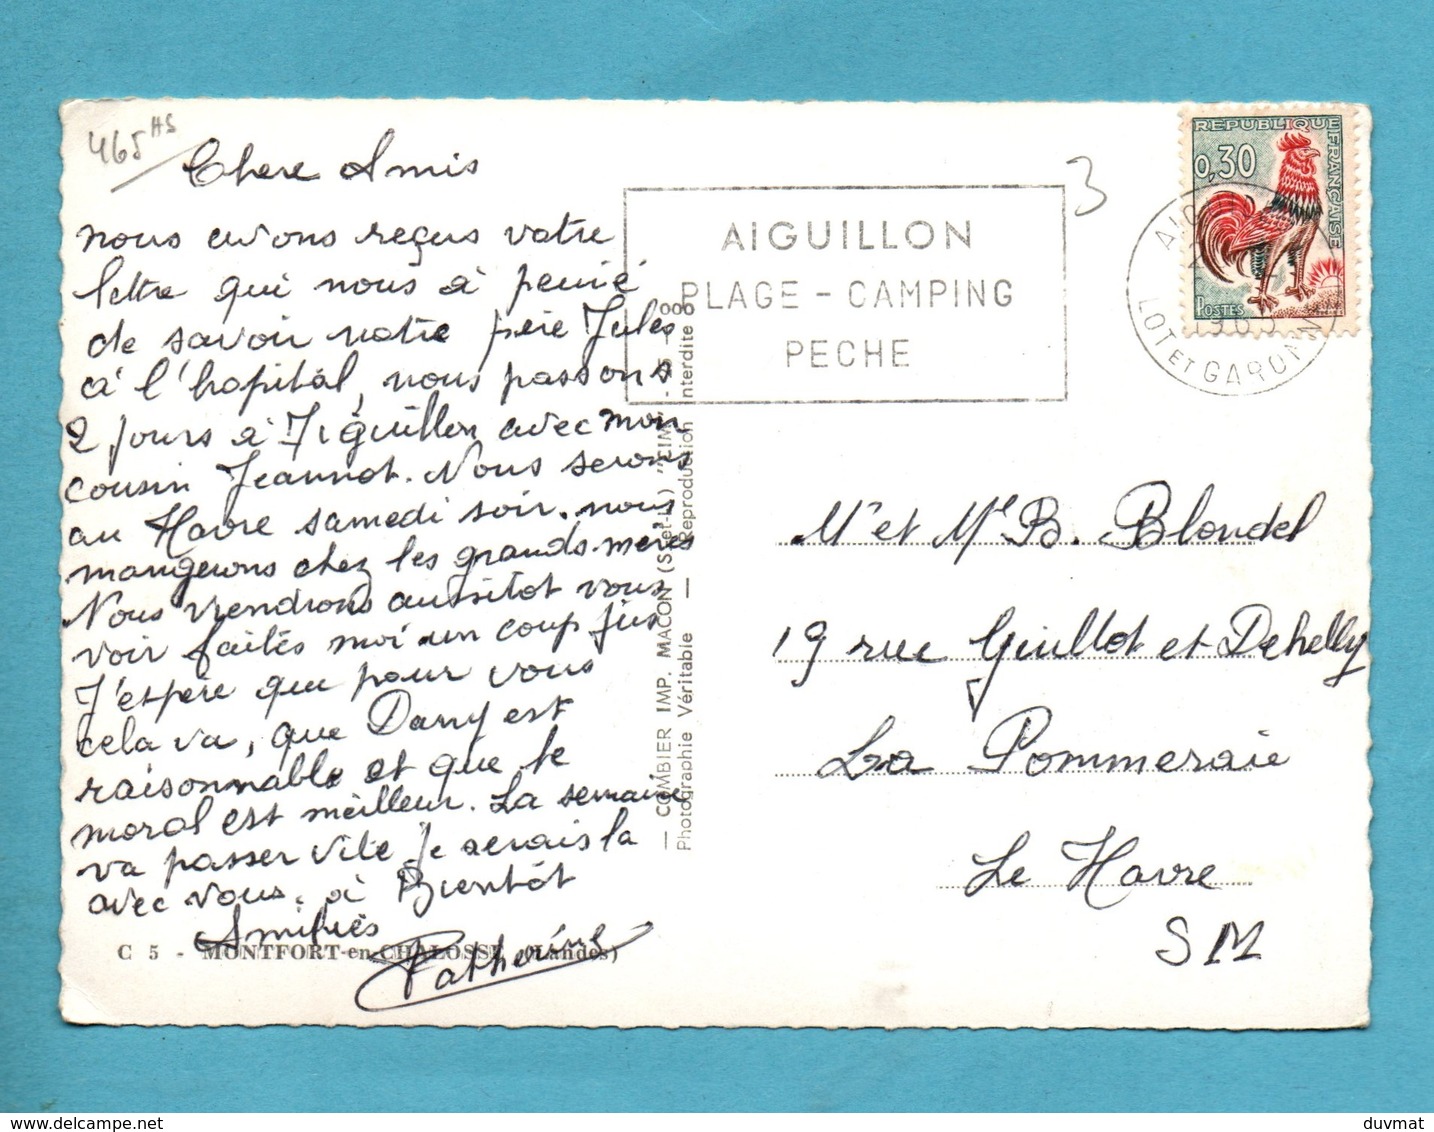 465 HS
Chere Amis
nous avons reçus votre
lettre qui nous à peiné
de savoir notre père Jules
à l'hopital, nous passons
2 jours à Aiguillon avec mon
cousin Jeannot. Nous serons
au Havre samedi soir. nous
mangerons chez les grands-mères
Nous viendrons aussitot vous
voir faites moi un coup jus
J'espère que pour vous
cela va, que Dany est
raisonnable et que le
moral est meilleur. La semaine
va passer vite je serais la
avec vous. à Bientôt
Amitiés
Catherine
C 5 - MONTFORT-en-CHALOSSE (Landes)
— COMBIER IMP. MACON (S.-et-L.) "CIM"
Photographie Véritable — Reproduction Interdite
AIGUILLON
PLAGE - CAMPING
PECHE
3
REPUBLIQUE FRANÇAISE
0,30
POSTES
LOT ET GARONNE
Mr et Me B. Blondel
19 rue Guillot et Dehelly
La Pommeraie
Le Havre
S M
duvmat